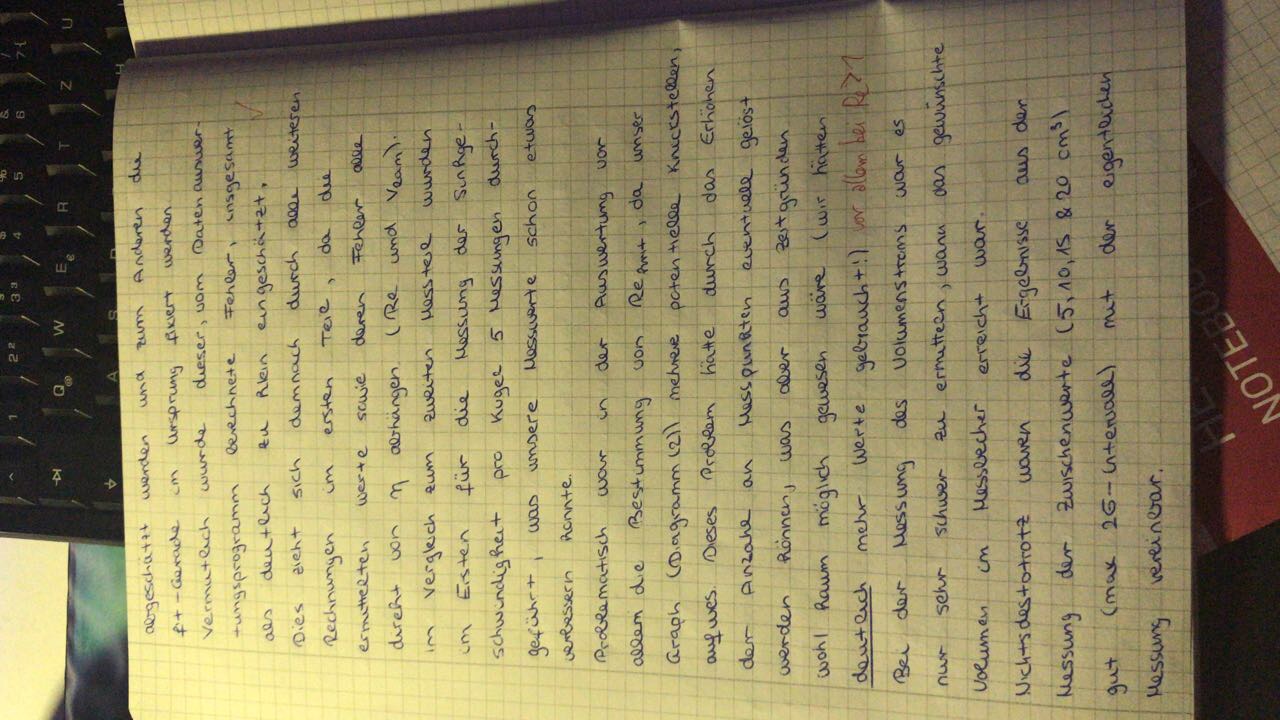 ^ 1 2 ² 3 ³ $ 4 % 5 & 6 7 {
Q @ W E € R T Z U
A S D H
abgeschätzt werden und zum Anderen die
fit-Gerade im Ursprung fixiert werden.
Vermutlich wurde dieser, vom Datenauswer-
tungsprogramm berechnete Fehler, insgesamt
als deutlich zu klein eingeschätzt.
Dies zieht sich demnach durch alle weiteren
Rechnungen im ersten Teil, da die
ermittelten Werte sowie deren Fehler alle
direkt von η abhängen. (Re und Vlam).
Im Vergleich zum zweiten Messteil wurden
im Ersten für die Messung der Sinkge-
schwindigkeit pro Kugel 5 Messungen durch-
geführt, was unsere Messwerte schon etwas
verbessern konnte.
Problematisch war in der Auswertung vor
allem die Bestimmung von Rekrit, da unser
Graph (Diagramm (2)) mehrere potentielle Knickstellen,
aufwies. Dieses Problem hätte durch das Erhöhen
der Anzahl an Messpunkten eventuell gelöst
werden können, was aber aus Zeitgründen
wohl kaum möglich gewesen wäre (wir hätten
deutlich mehr Werte gebraucht!) vor allem bei Re>1
Bei der Messung des Volumenstroms war es
nur sehr schwer zu ermitteln, wann das gewünschte
Volumen im Messbecher erreicht war.
Nichtsdestotrotz waren die Ergebnisse aus der
Messung der Zwischenwerte (5, 10, 15 & 20 cm³)
gut (max 2σ-Intervall) mit der eigentlichen
Messung vereinbar.
NOTEBOO